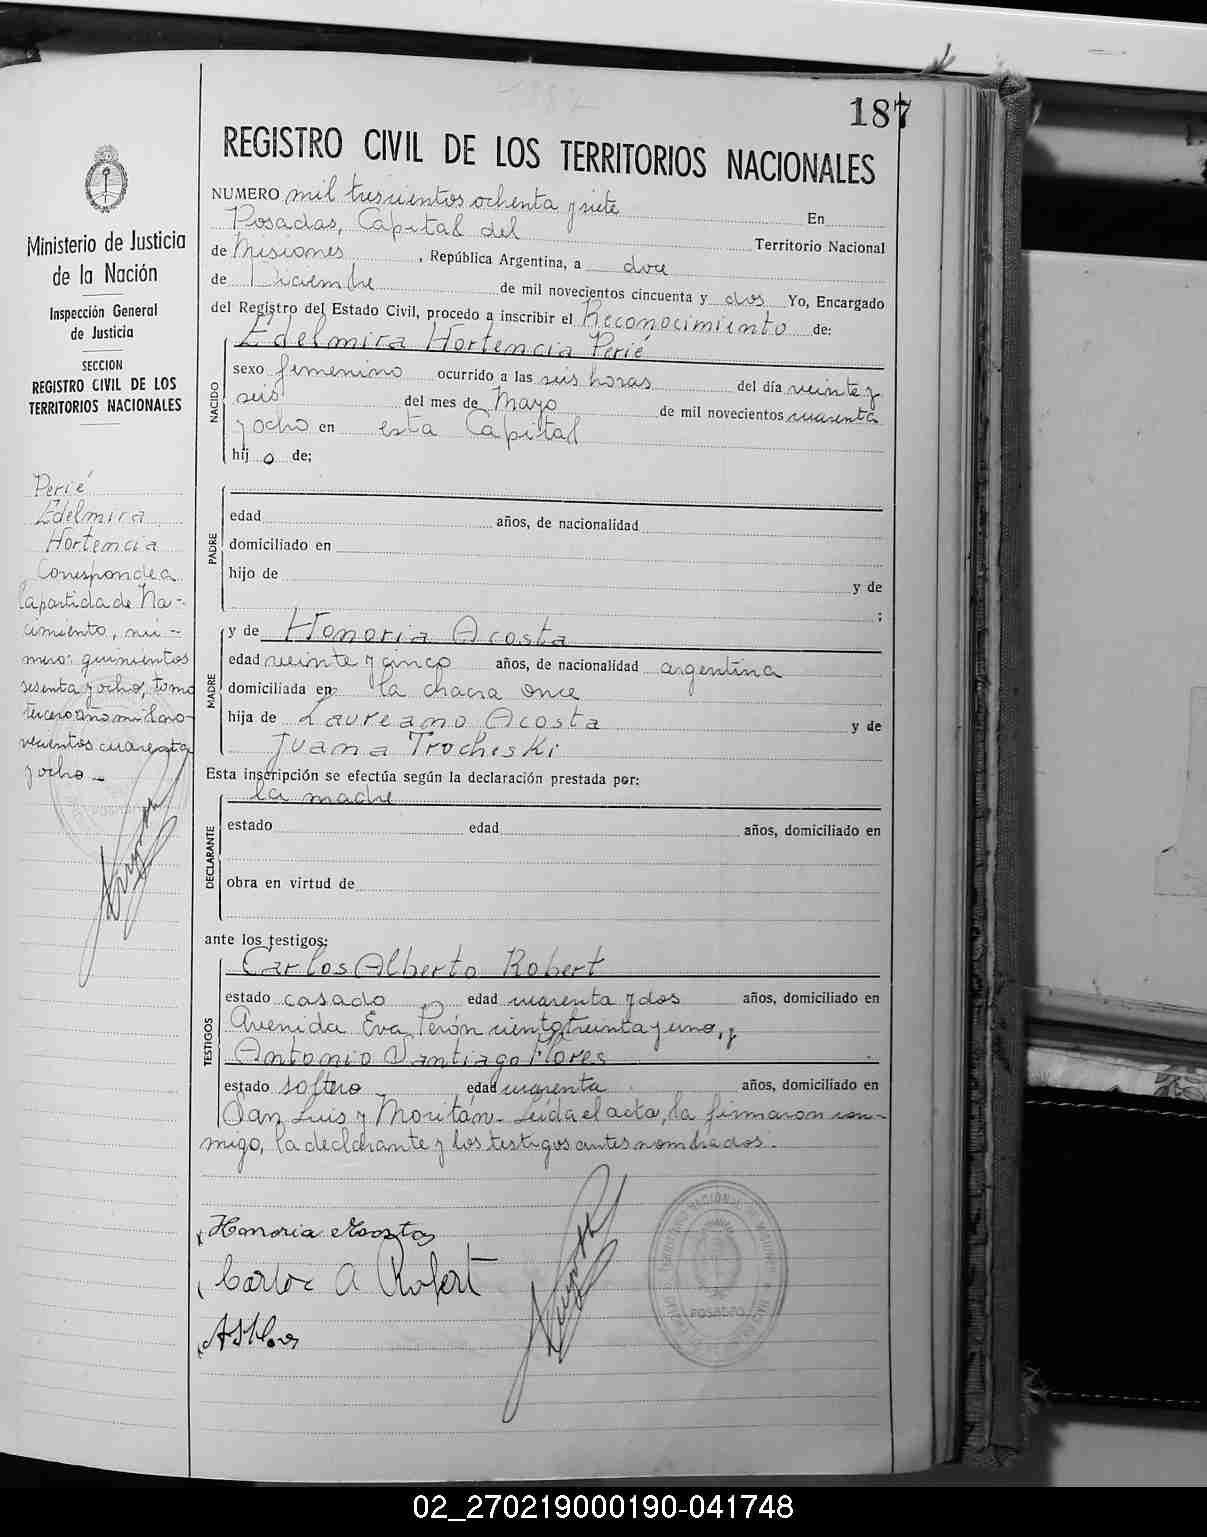 187
REGISTRO CIVIL DE LOS TERRITORIOS NACIONALES
NUMERO mil trescientos ochenta y siete En
Posadas, Capital del Territorio Nacional
de Misiones, República Argentina, a doce
de Diciembre de mil novecientos cincuenta y dos Yo, Encargado
del Registro del Estado Civil, procedo a inscribir el Reconocimiento de:
Edelmira Hortencia Perié
NACIDO
sexo femenino ocurrido a las seis horas del día veinte y
seis del mes de Mayo de mil novecientos cuarenta
y ocho en esta Capital
hij o de;
PADRE
edad años, de nacionalidad
domiciliado en
hijo de y de
;
MADRE
y de Honoria Acosta
edad veinte y cinco años, de nacionalidad argentina
domiciliada en la chacra once
hija de Laureano Acosta y de
Juana Trocheski
Esta inscripción se efectúa según la declaración prestada por:
la madre
DECLARANTE
estado edad años, domiciliado en
obra en virtud de
ante los testigos:
TESTIGOS
Carlos Alberto Robert
estado casado edad cuarenta y dos años, domiciliado en
Avenida Eva Perón ciento treinta y uno, y
Antonio Santiago Flores
estado soltero edad cuarenta años, domiciliado en
San Luis y Moritán. Leida el acta, la firmaron con-
migo, la declarante y los testigos antes nombrados.
Honoria Acosta
Carlos A Robert
ASFlores
POSADAS
Ministerio de Justicia
de la Nación
Inspección General
de Justicia
SECCION
REGISTRO CIVIL DE LOS
TERRITORIOS NACIONALES
Perié
Edelmira
Hortencia
Corresponde a
la partida de Na-
cimiento, nú-
mero: quinientos
sesenta y ocho, tomo
tercero año mil no-
vecientos cuarenta
y ocho
02_270219000190-041748